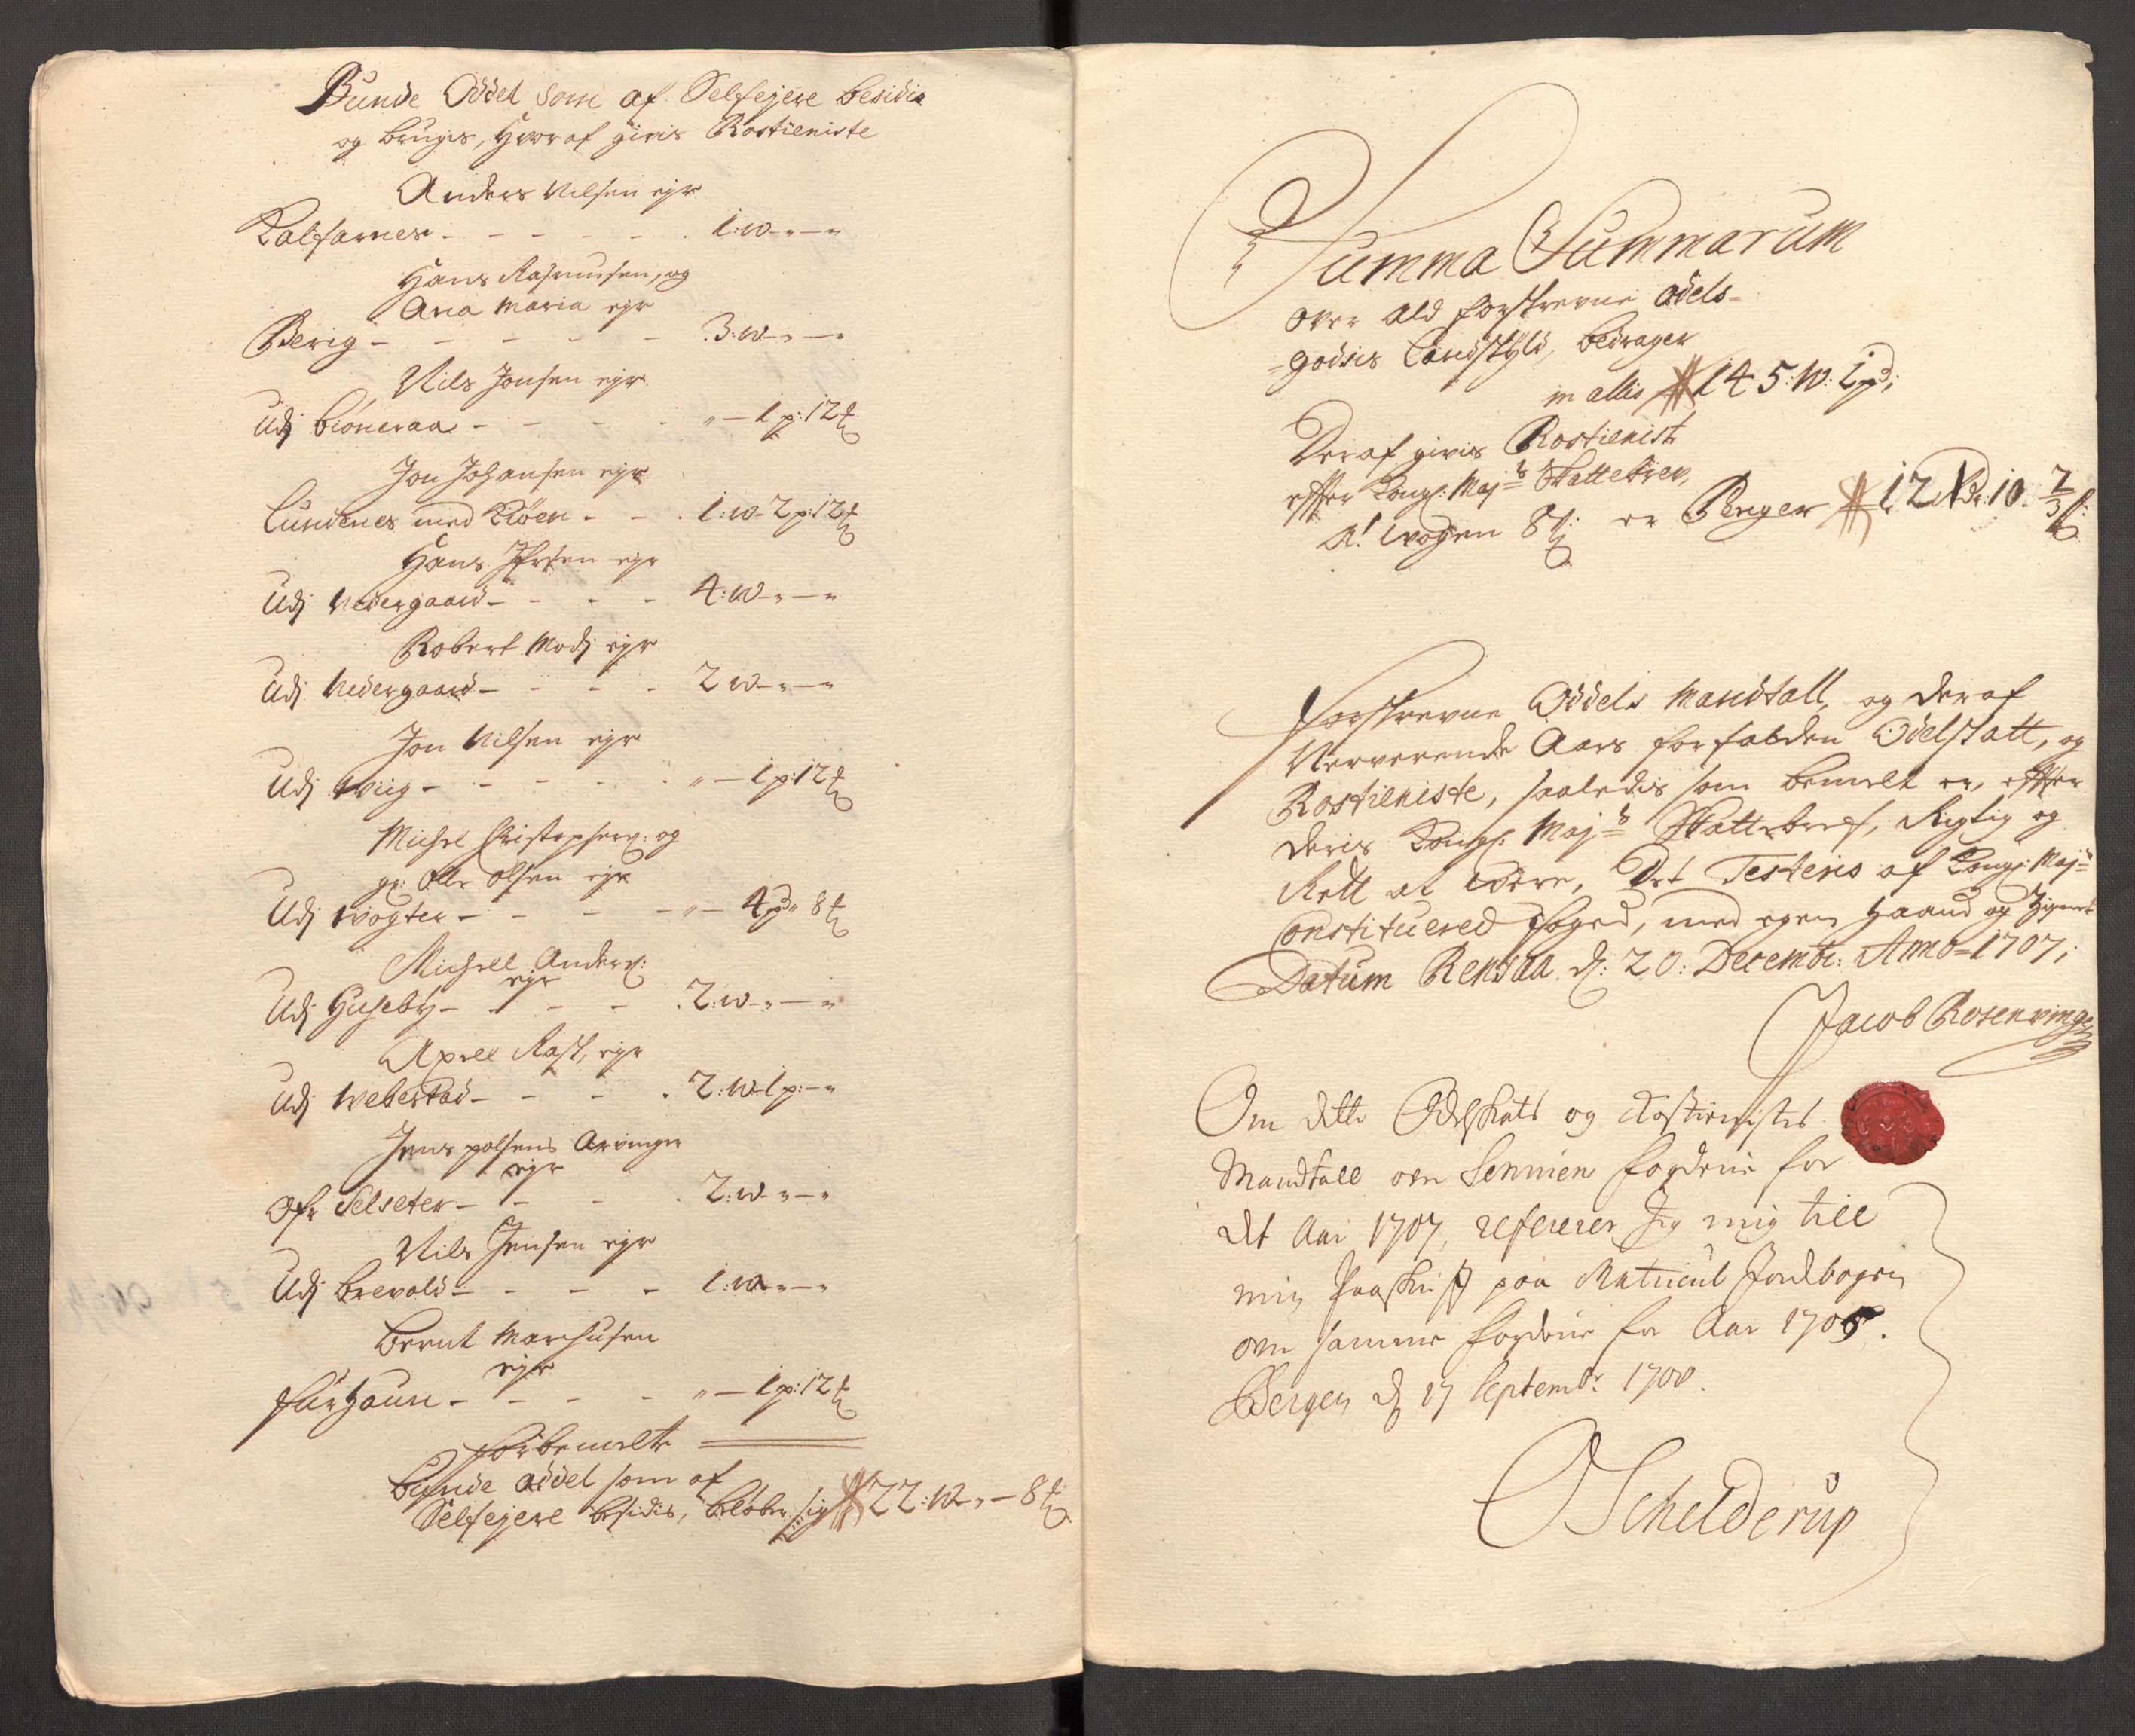 Bunde Oddel som af Selfejere besidis
og bruges, hvoraf gives Rostieniste
Anders Nilsen ejr
Kalfarnes - - - - - - 1:w-"-"
Hans Rasmusen, og
Ana Maria ejr
Berig - - - - - - 3:w-"-"
Nils Jonsen ejr
Udj biøneraa - - - - "-1p:12℔
Jon Johansen ejr
Lundenes med Kiøen - - 1:w-2p:12℔
Hans Ifrsen ejr
Udj Nedergaard - - - - 4:w-"-"
Robert Modj ejr
Udj Nedergaard - - - - 2w-"-"
Jon Nilsen ejr
Udj wiig - - - - - "-1p:12℔
Michel Christophers: og
Olle Olsen ejr
Udj wogter - - - - "-4p" 8℔
Michell Anders:
ejr
Udj Huseby - - - - 2:w-"-"
Axell Rast, ejr
Udj Webestad - - - - 2:w-1p:-"
Jens polsens Arvinger
ejr
Ofr Selseter - - - - 2:w-"-"
Nils Jensen ejr
Udj brevold - - - - 1:w-"-"
Bernt Marchusen
ejr
Furhoun - - - - "-1p:12℔
Forbemelte
bunde oddel som af
Selfejere besidis, beløber sig 22:w-"-8℔
Summa Summarum
over ald forskrevne odels-
-godsis Landskyld, bedrager
in allis 145:w:1pd;
Deraf givis Rostienist
effter Kongl: Majts Skattebrev,
A! wogen 8 ß er Penger 12 Rdr: 10 2/3 ß:
Forskrevne Oddels Mandtall, og deraf
Nerverende Aars forfalden Odelskatt, og
Rostieniste, saaledis som bemelt er, effter
deris Kongl: Majts Skattebref, Rigtig og
Rett at wære, Det Testeris af Kongl: Majts
Constituered Foged, med egen Haand og Zignet
Datum Rensaa d: 20: Decembr: Anno=1707;
Jacob Rosenvinge
Om dette Odelskatts og Rostienistes
Mandtall over Sennien fogderie for
det Aar 1707, refererer Jeg mig till
min Paaskrifft paa Matricul Jordbogen
over samme fogderie for Aar 1705.
Bergen d 17 Septembr: 1708.
O Schelderup